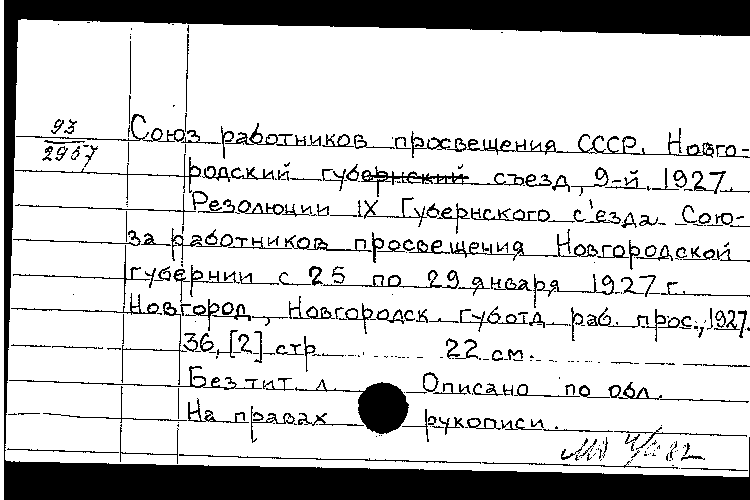 93
2967
Союз работников просвещения СССР. Новго-
родский губернский съезд, 9-й. 1927.
Резолюции IX Губернского с'езда Сою-
за работников просвещения Новгородской
губернии с 25 по 29 января 1927 г.
Новгород, Новгородск. губотд раб. прос., 1927.
36, [2] стр. 22 см.
Без тит. л. Описано по обл.
На правах рукописи.